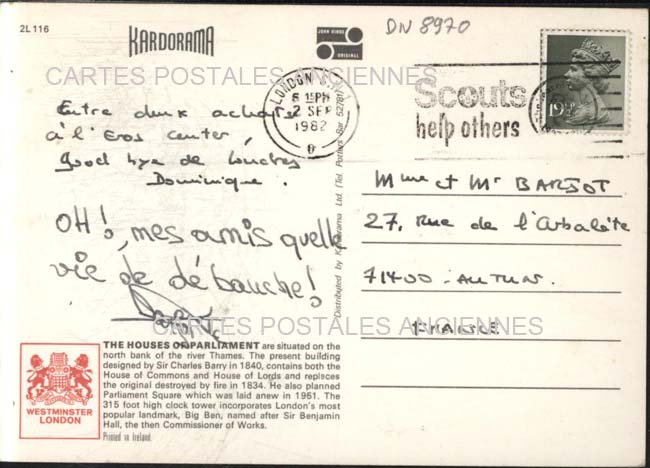 2L 116
KARDORAMA
JOHN HINDE
ORIGINAL
DN 8970
CARTES POSTALES ANCIENNES
LONDON
6 15PM
2 SEP
1982
Scouts
help others
19½P
Entre deux achats
à l'Eros center,
Good bye de Londres
Dominique.
OH!, mes amis quelle
vie de débauche!
Distributed by Kardorama Ltd. (Tel. Potters Bar 52781)
Mme et Mr BARJOT
27, Rue de l'Arbalète
71400 - AUTUN.
FRANCE
CARTES POSTALES ANCIENNES
WESTMINSTER
LONDON
THE HOUSES OF PARLIAMENT are situated on the
north bank of the river Thames. The present building
designed by Sir Charles Barry in 1840, contains both the
House of Commons and House of Lords and replaces
the original destroyed by fire in 1834. He also planned
Parliament Square which was laid anew in 1951. The
315 foot high clock tower incorporates London's most
popular landmark, Big Ben, named after Sir Benjamin
Hall, the then Commissioner of Works.
Printed in Ireland.